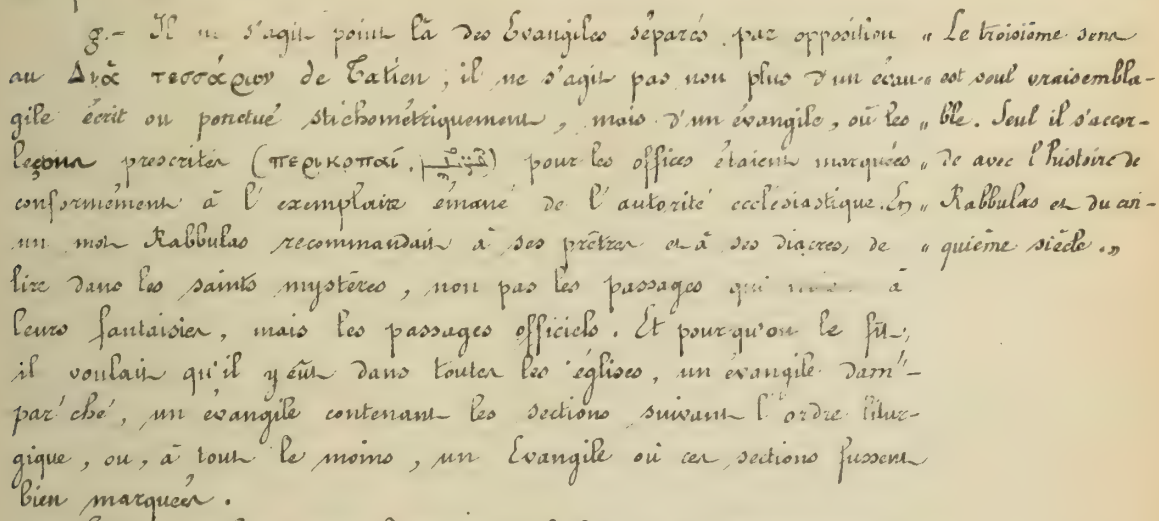 g.- Il ne s'agit point là des Evangiles séparés par opposition
au Διὰ τεσσάρων de Tatien ; il ne s'agit pas non plus d'un évan-
gile écrit ou ponctué stichométriquement, mais d'un évangile, où les
leçons prescrites (περικοπαί, ) pour les offices étaient marquées
conformément à l'exemplaire émané de l'autorité ecclésiastique. En
un mot Rabbulas recommandait à ses prêtres et à ses diacres, de
lire dans les saints mystères, non pas les passages qui à
leurs fantaisies, mais les passages officiels. Et pour qu'on le fît,
il voulait qu'il y eût dans toutes les églises, un évangile Dam'-
par'ché', un évangile contenant les sections suivant l'ordre litur-
gique, ou, à tout le moins, un Evangile où ces sections fussent
bien marquées.
„ Le troisième sens
„ est seul vraisembla-
„ ble. Seul il s'accor-
„ de avec l'histoire de
„ Rabbulas et du cin-
„ quième siècle.„